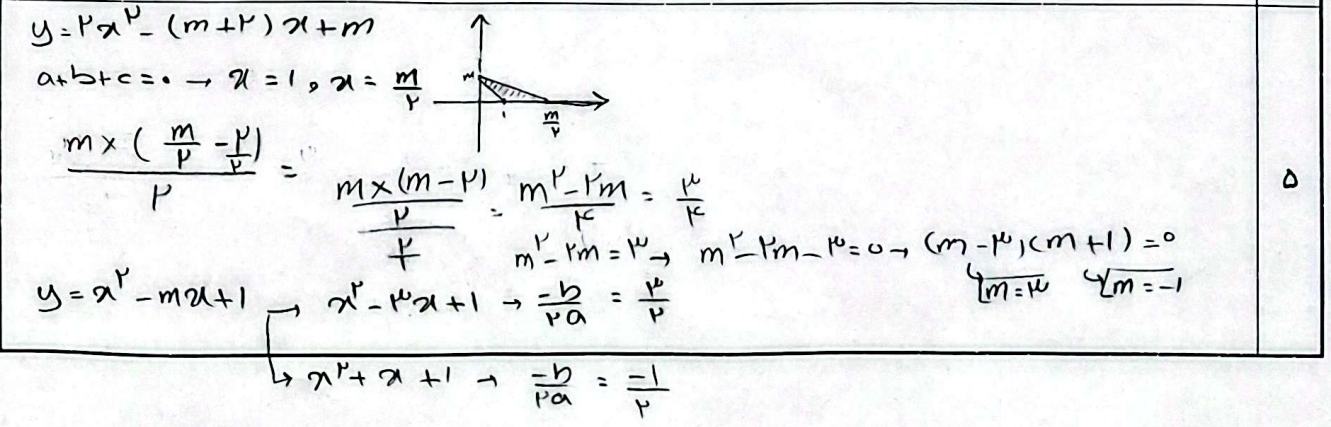 y = ۲x^۲ - (m+۲)x + m
a+b+c = ۰ → x = ۱ و x = m/۲
m ۱ m/۲
(m × (m/۲ - ۲/۲))/۲ = ((m × (m-۲))/۲)/۲ = (m^۲ - ۲m)/۴ = ۳/۴
۵
m^۲ - ۲m = ۳ → m^۲ - ۲m - ۳ = ۰ → (m-۳)(m+۱) = ۰
m = ۳ m = -۱
y = x^۲ - mx + ۱ → x^۲ - ۳x + ۱ → -b/۲a = ۳/۲
→ x^۲ + x + ۱ → -b/۲a = -۱/۲